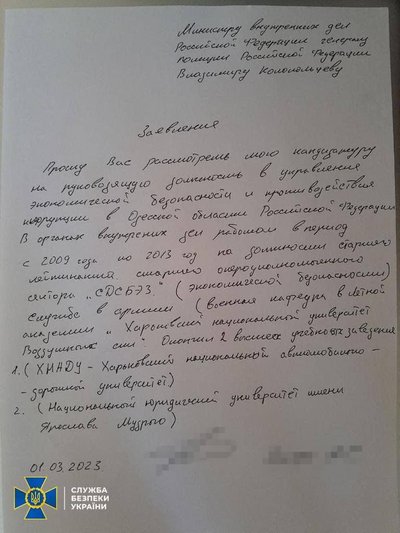 Министру внутренних дел
Российской Федерации генералу
полиции Российской Федерации
Владимиру Колокольцеву
Заявление
Прошу Вас рассмотреть мою кандидатуру
на руководящую должность в управления
экономической безопасности и противодействия
коррупции в Одеской области Российской Федерации
В органах внутрених дел работал в период
с 2009 года по 2013 год на должности старшего
лейтинанта старшего оперуполномоченого
сектора "СДСБЭЗ" (экономической безопасности)
Служба в армии (военная кафедра в Лётной
академии "Харьковский национальной университет
Воздушных сил" Окончил 2 высших учебных заведения
1. (ХНАДУ - Харьковский национальной автомобильно -
- дорожный университет)
2. (Национальный юридический университет имени
Ярослава Мудрого)
01.03.2023
СЛУЖБА
БЕЗПЕКИ
УКРАЇНИ